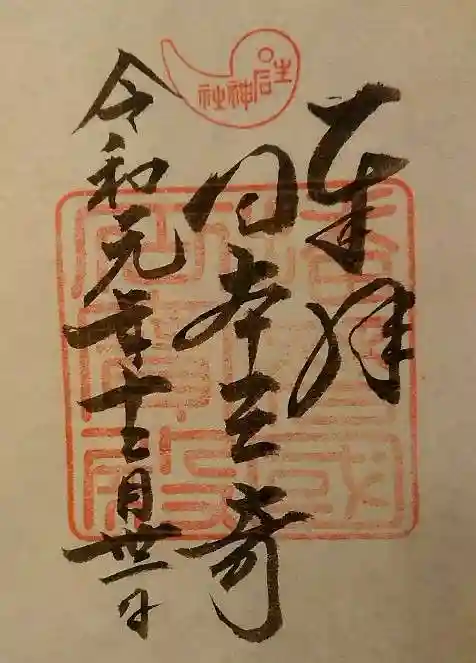 生石神社
奉拝
日本三奇
令和元年十二月丗一日